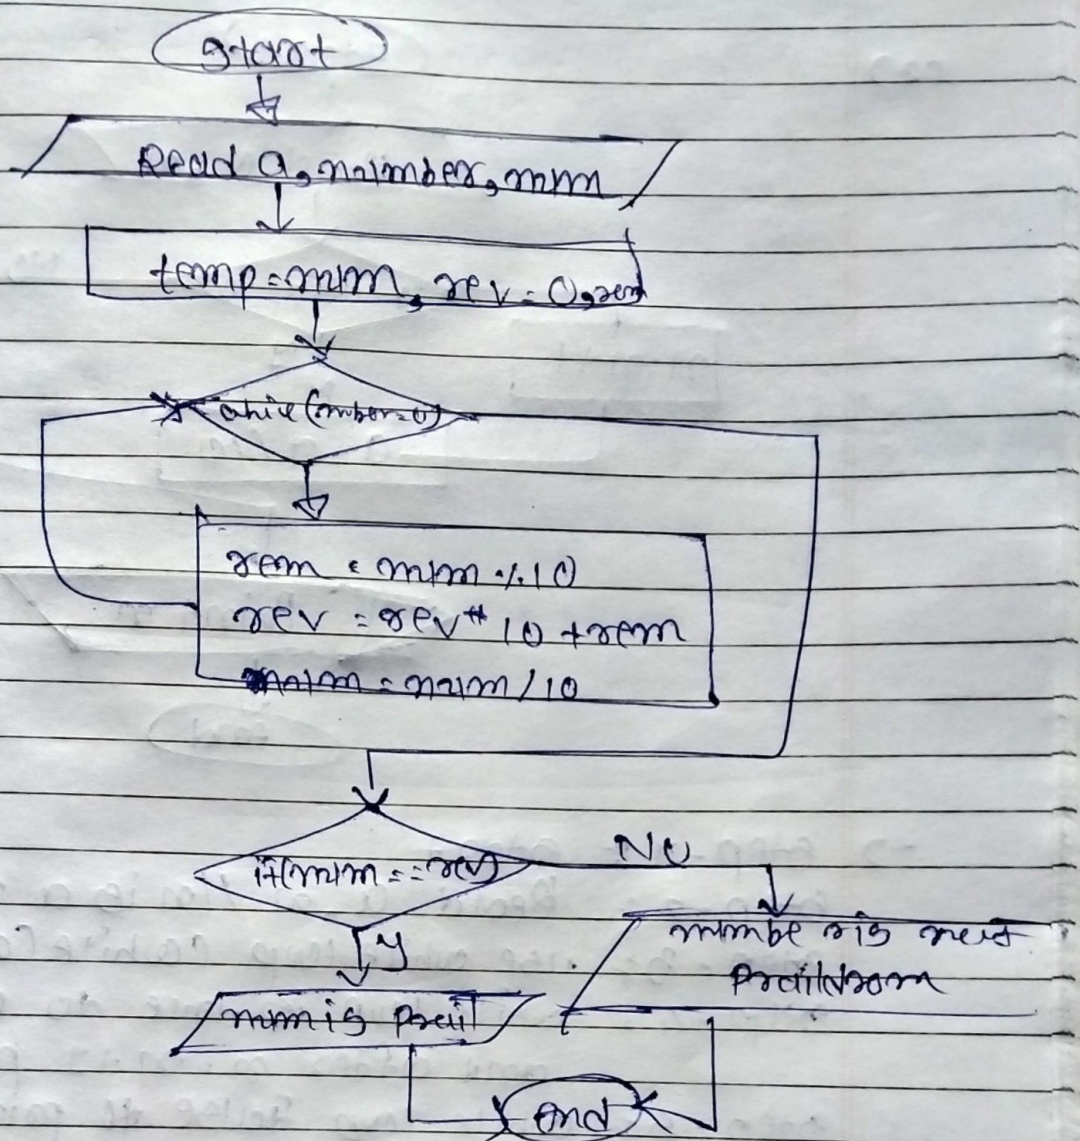 Start
Read a, number, num
temp = num, rev = 0, rem
while (number = 0)
rem = num % 10
rev = rev * 10 + rem
num = num / 10
if(num == rev)
No
y
number is not
num is
End